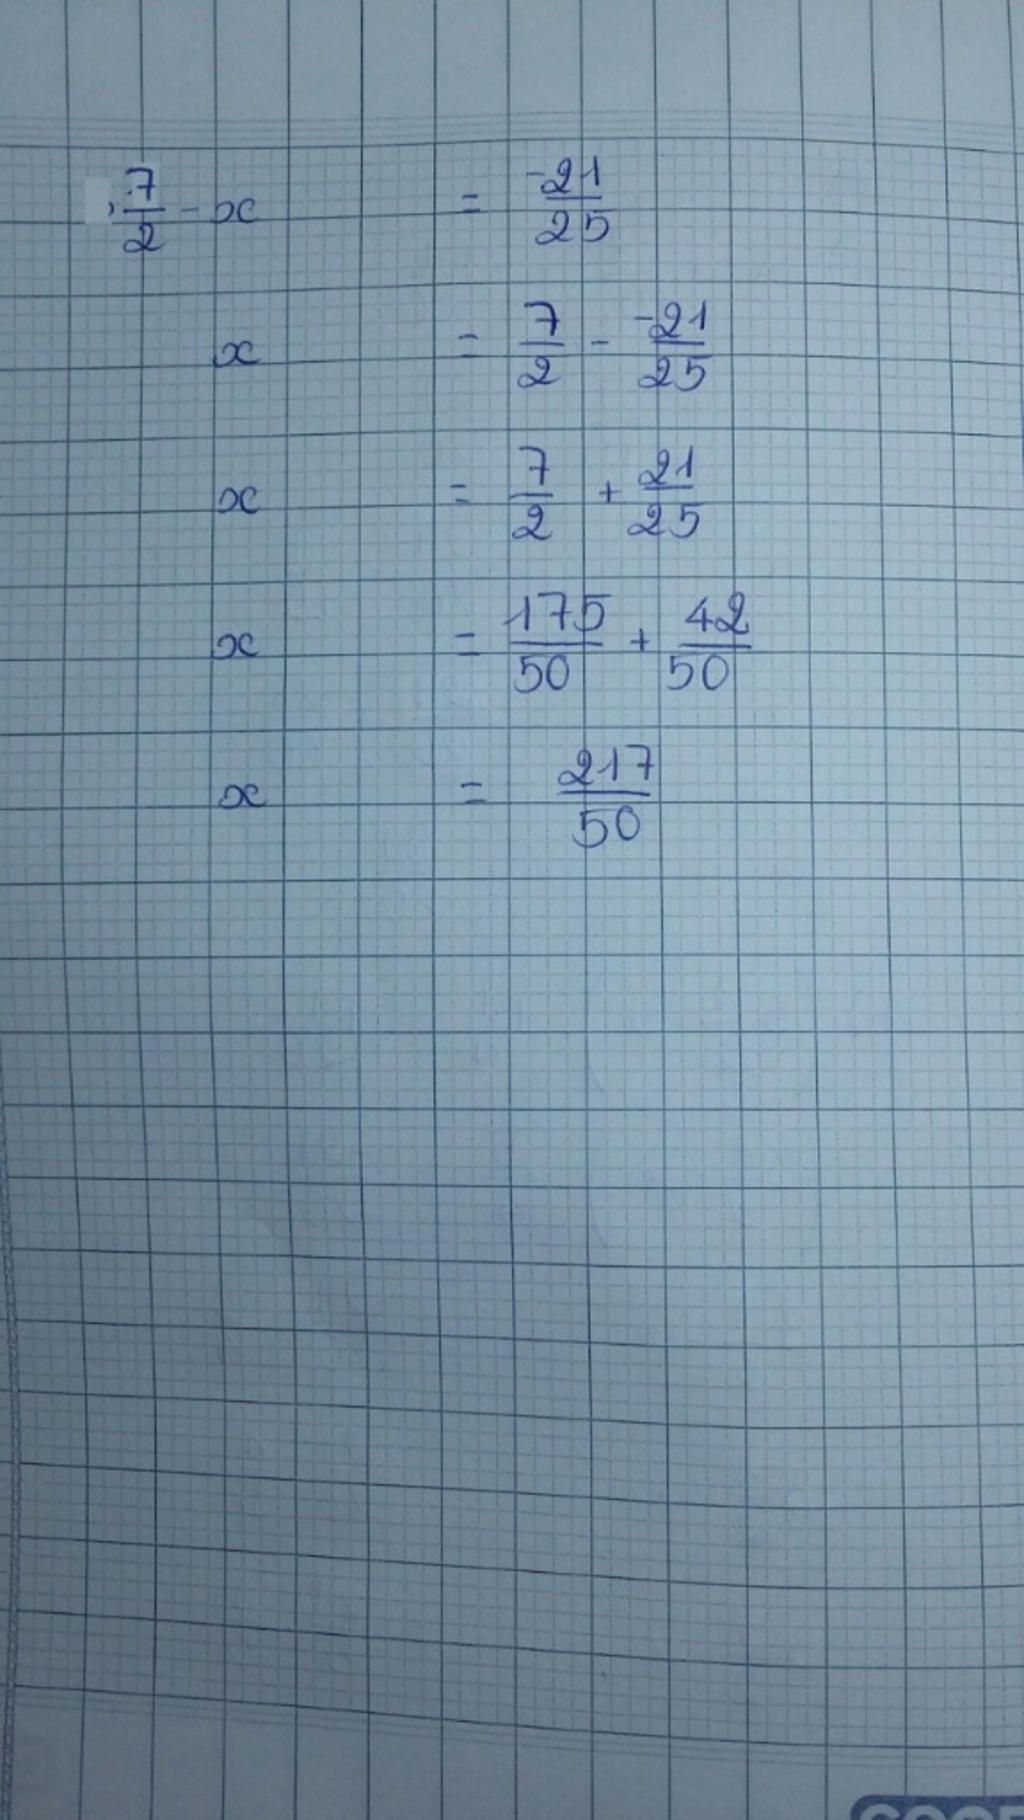 7/2 - x = -21/25
x = 7/2 - -21/25
x = 7/2 + 21/25
x = 175/50 + 42/50
x = 217/50